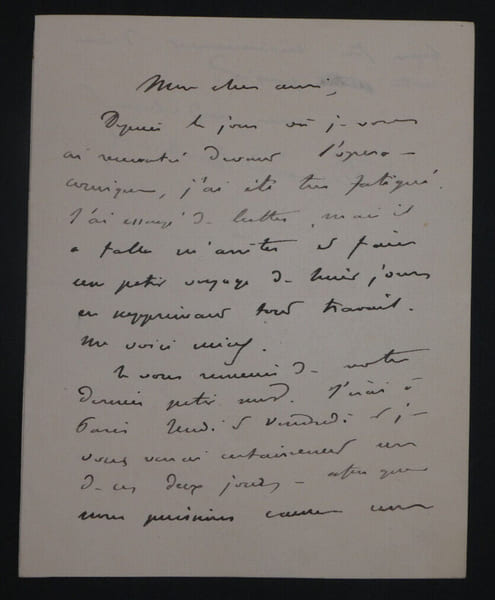 Mon cher ami,
Depuis le jour où je vous
ai rencontré devant l'opéra-
comique, j'ai été très fatigué.
J'ai essayé de lutter, mais il
a fallu m'arrêter et faire
un petit voyage de huit jours
en supprimant tout travail.
Me voici mieux.
Je vous remercie de votre
dernier petit mot. J'irai à
Paris Jeudi et Vendredi et je
vous verrai certainement un
de ces deux jours - afin que
nous puissions causer une